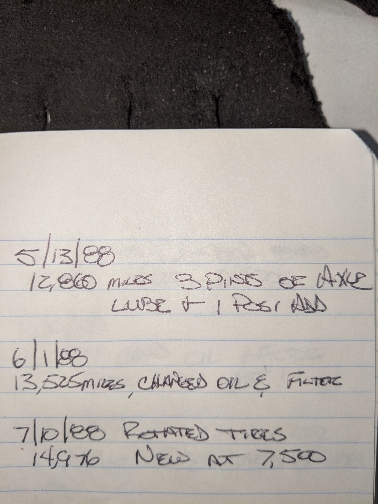 5/13/88
12,860 MILES 3 PINTS OF AXLE
LUBE + 1 POSI ADD
6/1/88
13,525 MILES, CHANGED OIL & FILTER
7/10/88 ROTATED TIRES
14,976 NEW AT 7,500